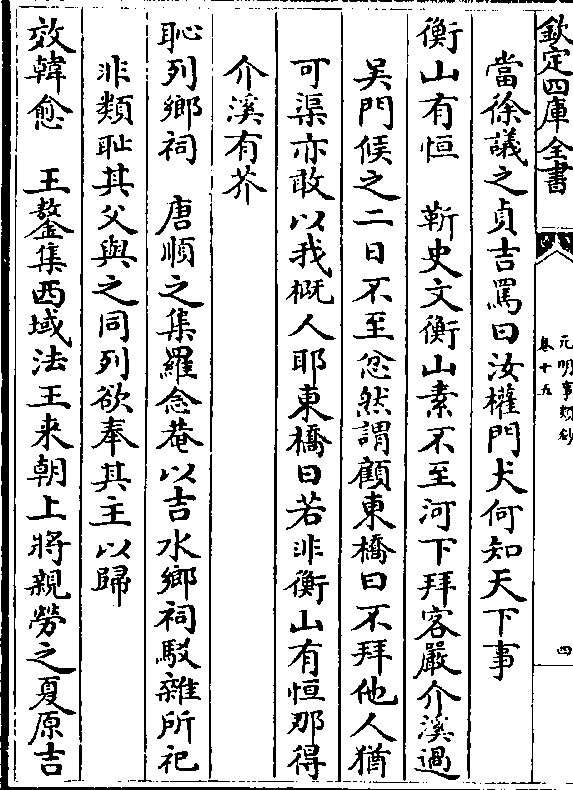 欽定四庫全書
元明事類鈔
卷十五
四
當徐議之貞吉罵曰汝權門犬何知天下事
衡山有恒　靳史文衡山素不至河下拜客嚴介溪過
吳門候之二日不至忿然謂顧東橋曰不拜他人猶
可渠亦敢以我概人耶東橋曰若非衡山有恒那得
介溪有芥
恥列鄉祠　唐順之集羅念菴以吉水鄉祠駁雜所祀
非類耻其父與之同列欲奉其主以歸
效韓愈　王鏊集西域法王来朝上將親勞之夏原吉